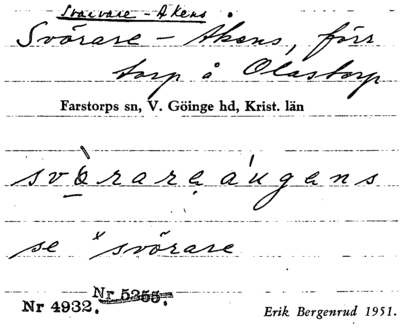 Svarvare - Akens
Svörare - Akens, förr
torp å Olastorp
Farstorps sn, V. Göinge hd, Krist. län
svörare áugens
se × svörare
Nr 5255.
Nr 4932.
Erik Bergenrud 1951.